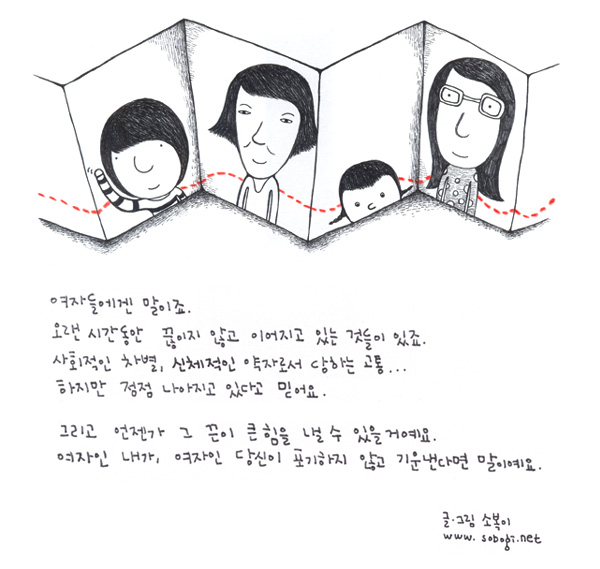 여자들에겐 말이죠.
오랜 시간동안 끊이지 않고 이어지고 있는 것들이 있죠.
사회적인 차별, 신체적인 약자로서 당하는 고통...
하지만 점점 나아지고 있다고 믿어요.
그리고 언젠가 그 끈이 큰 힘을 낼 수 있을거예요.
여자인 내가, 여자인 당신이 포기하지 않고 기운낸다면 말이예요.
글·그림 소복이
www.sobogi.net